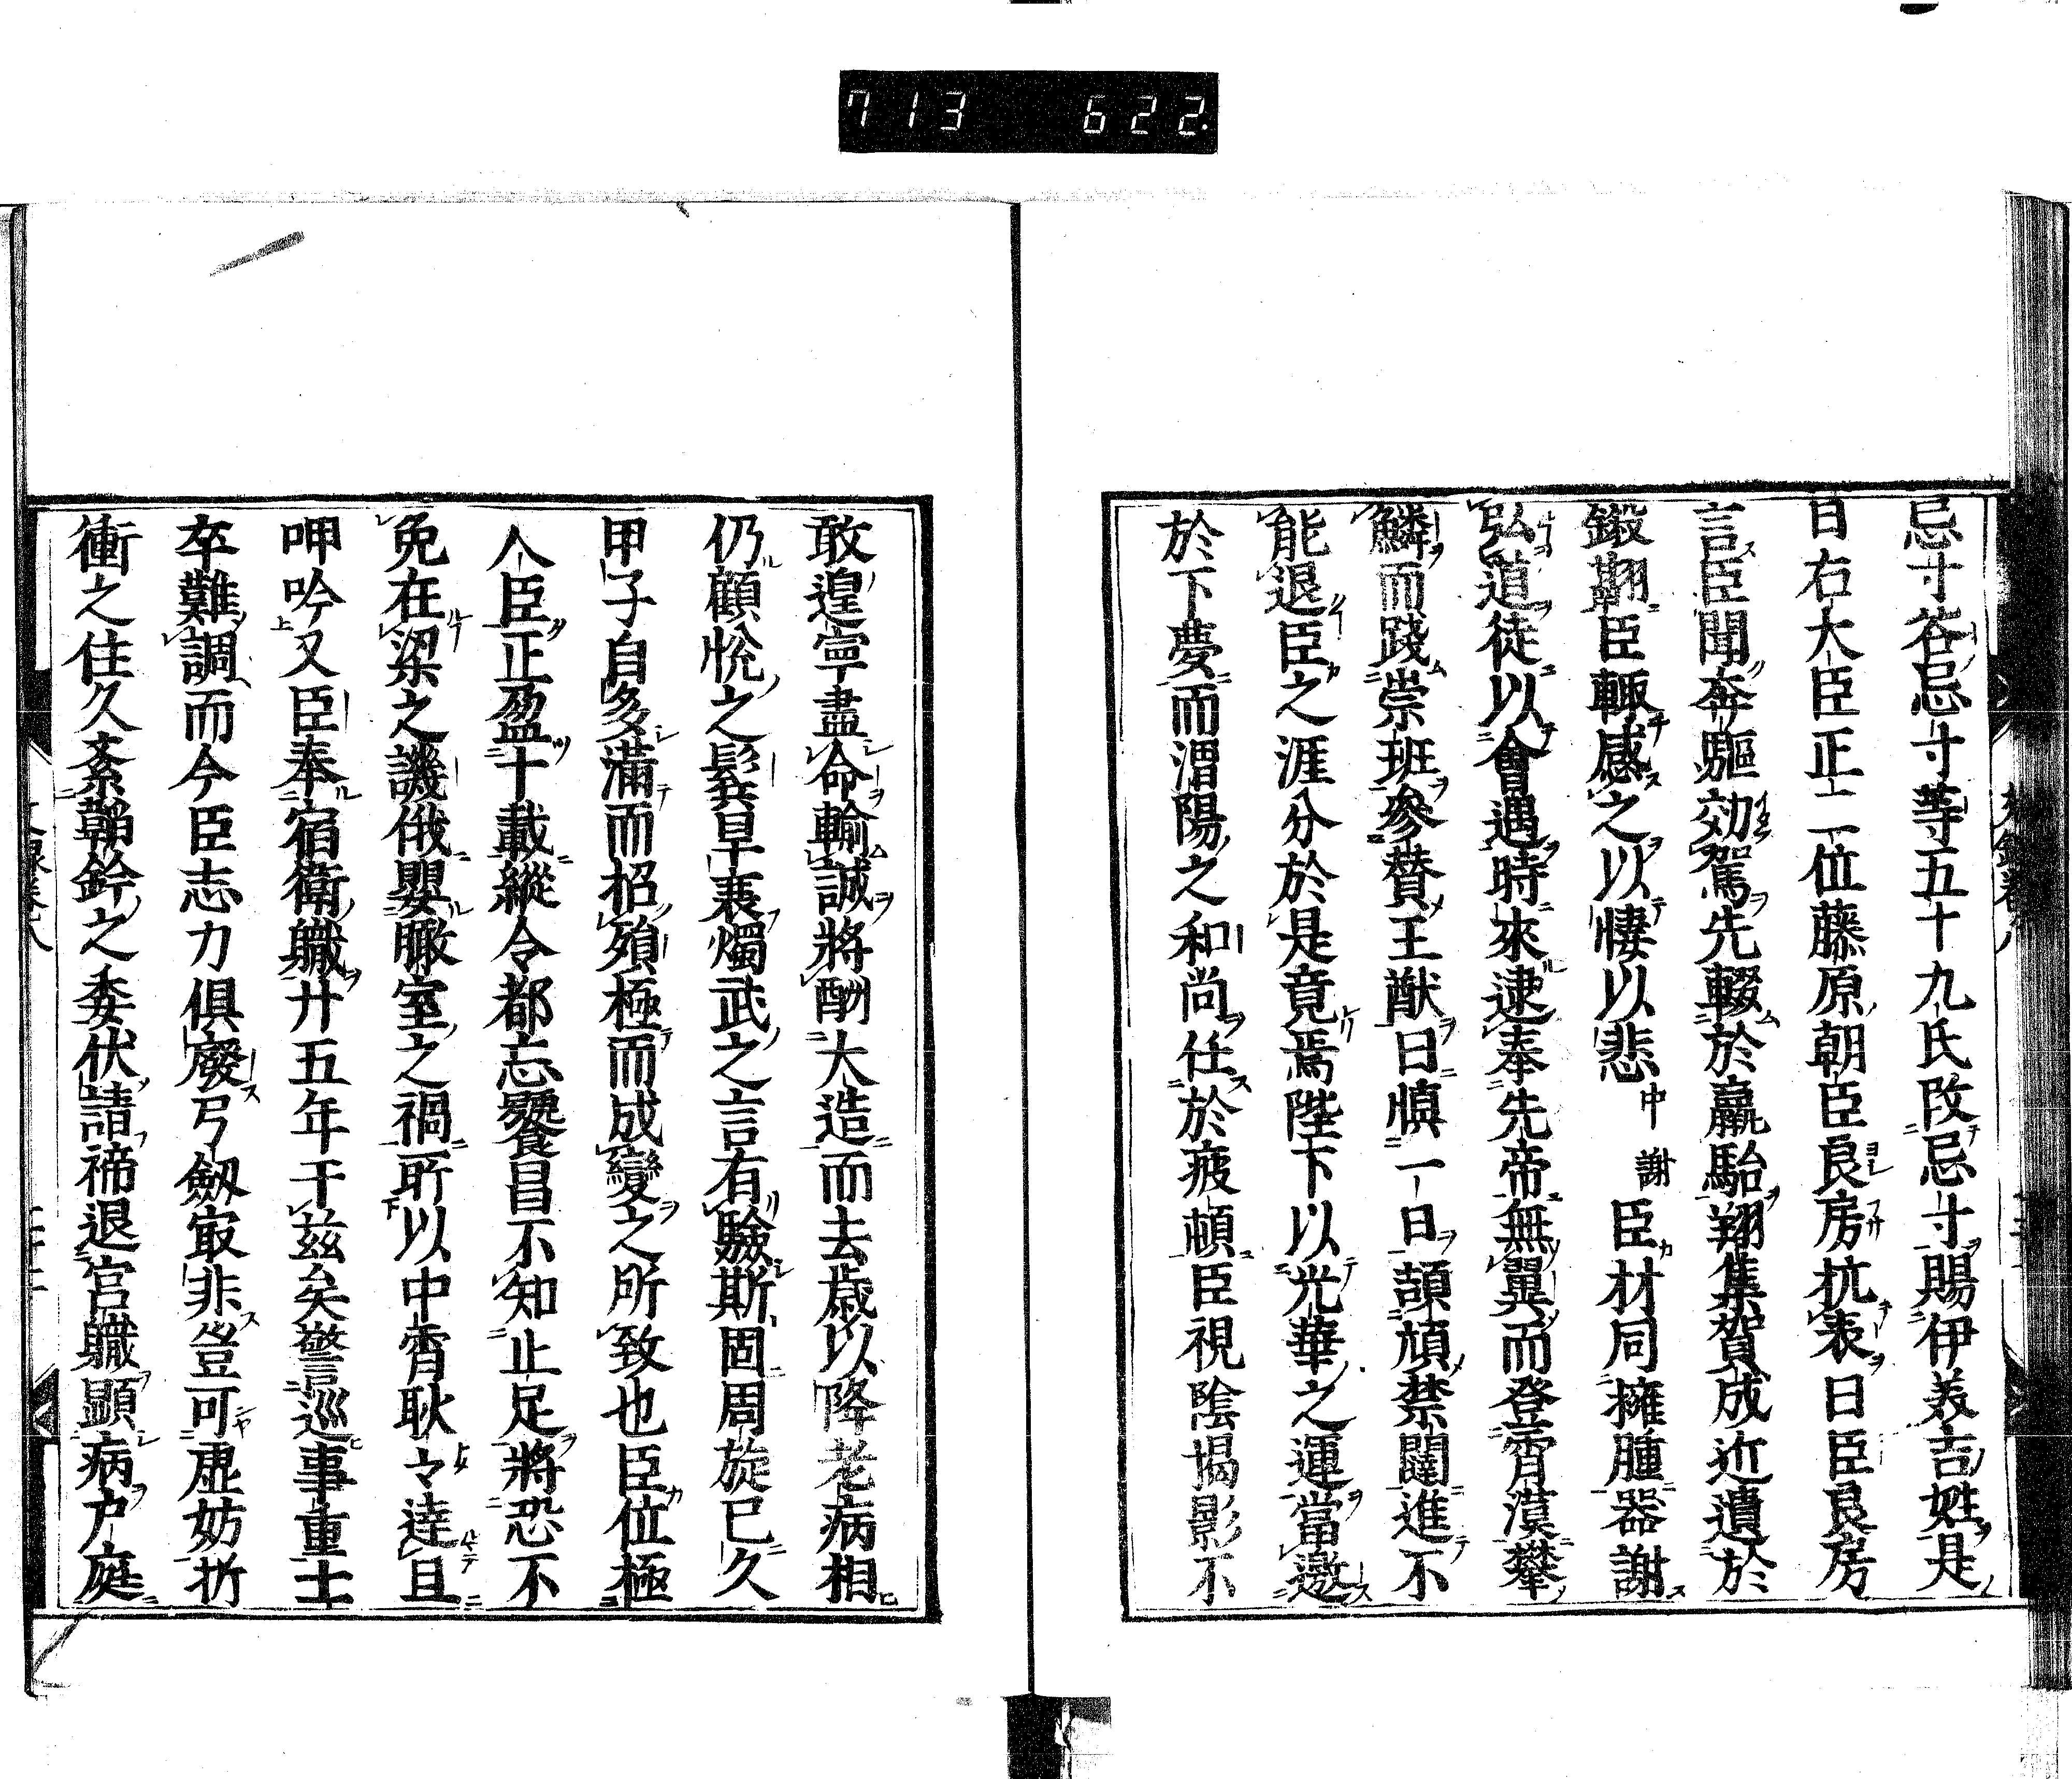 713 622
忌寸谷忌寸等五十九氏改忌寸賜伊美吉姓是
日右大臣正二位藤原朝臣良房抗表曰臣良房
言臣聞奔驅効駕先輟於羸駘翔集賀成近遺於
鍛翮臣輙感之以悽以悲中謝臣材同擁腫器謝
弘道徒以會遇時來逮奉先帝無翼而登霄漢攀
鱗而踐崇班參賛王猷日慎一日頡頏禁闥進不
能退臣之涯分於是竟焉陛下以光華之運當邀
於下夢而渭陽之和尚任於疲頓臣視陰揭影不
敢遑寧盡命輸誠將酬大造而去歳以降老病相
仍顧悅之鬂早衰燭武之言有驗斯固周旋已久
甲子自多滿而招殞極而成變之所致也臣位極
人臣正盈十載縱令都忘饕冒不知止足將恐不
免在梁之譏俄嬰瞰室之禍所以中霄耿々達且
呻吟又臣奉宿衛職廾五年于兹矣警巡事重士
卒難調而今臣志力俱癈弓劔㝡非豈可虚妨折
衝之任久紊鞱鈐之委伏請禘退宮職顯病戸庭